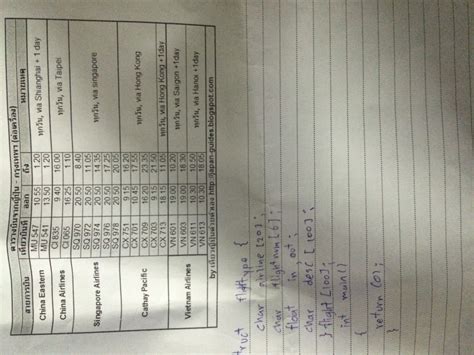 ตารางบินจากญี่ปุ่น - กรุงเทพฯ (ต่อเครื่อง)
สายการบิน เที่ยวบินที่ ออก ถึง หมายเหตุ
China Eastern MU 547 10.55 1.20 ทุกวัน, via Shanghai + 1 day
MU 541 13.50 1.20
China Airlines CI 835 9.40 ทุกวัน, via Taipei
CI 065 16.25 1.10
SQ 970 20.50 8.40
SQ 972 20.50
Singapore Airlines SQ 974 20.50 14.35 ทุกวัน, via singapore
SQ 976 20.50 17.25
SQ 978 20.50 20.05
CX 751 9.15 16.20
CX 701 10.45 17.55
Cathay Pacific CX 709 16.20 ทุกวัน, via Hong Kong
CX 703 9.15 21.50
CX 713 18.15 11.05 ทุกวัน, via Hong Kong +1day
Vietnam Airlines VN 601 19.00 10.20 ทุกวัน, via Saigon +1day
VN 603 19.00 18.30
VN 611 10.30 10.50 ทุกวัน, via Hanoi +1day
VN 613 10.30 18.05
http://japan-guides.blogspot.com
truct flighttype {
char airline [20] ;
char flightnum [6] ;
float in, out ;
char desc [100] ;
} flight [100] ;
int main()
{
return (0) ;
}